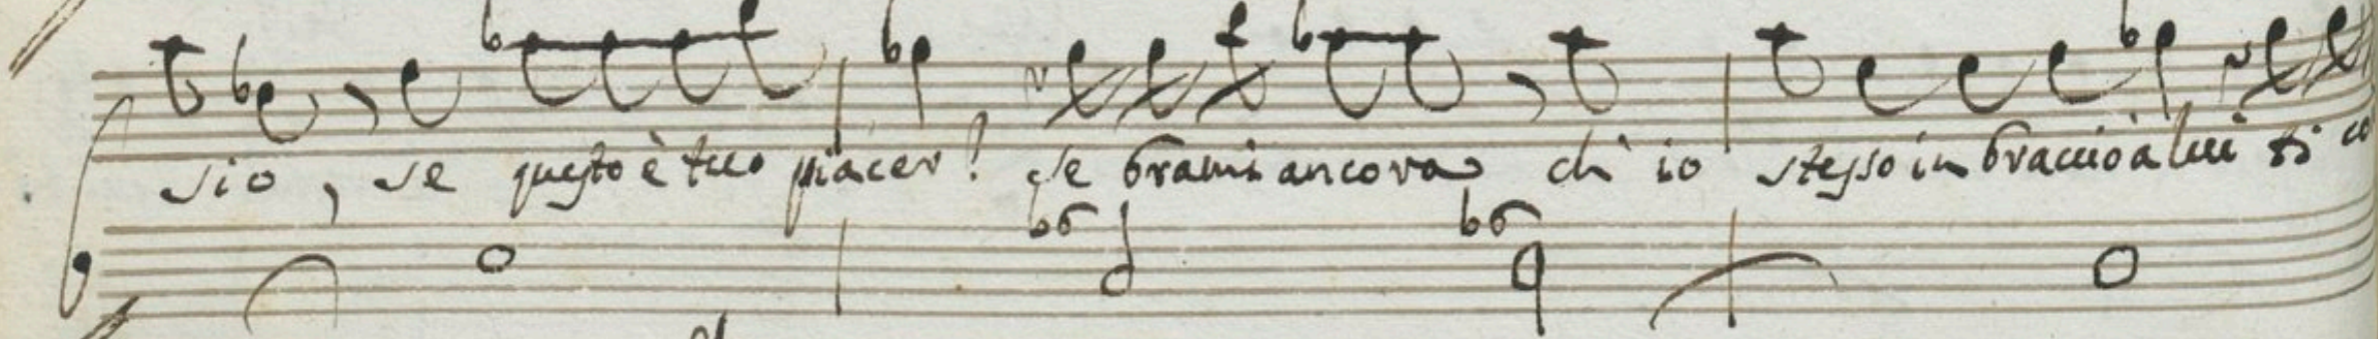 sio, se questo è tuo piacer? se brami ancora ch'io stesso in braccio a lui ti
b6 b6